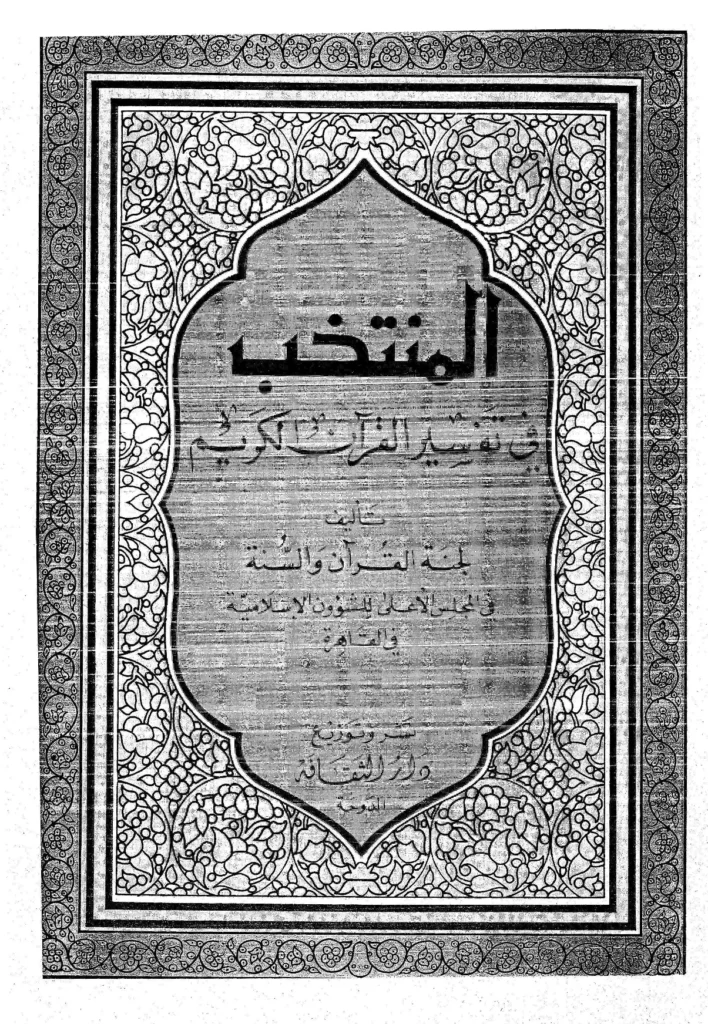 المنتخب
في تفسير القرآن الكريم
تأليف
لجنة القرآن والسُّنة
في المجلس الأعلى للشؤون الإسلامية
في القاهرة
نشر وتوزيع
دار الثقافة
الدوحة